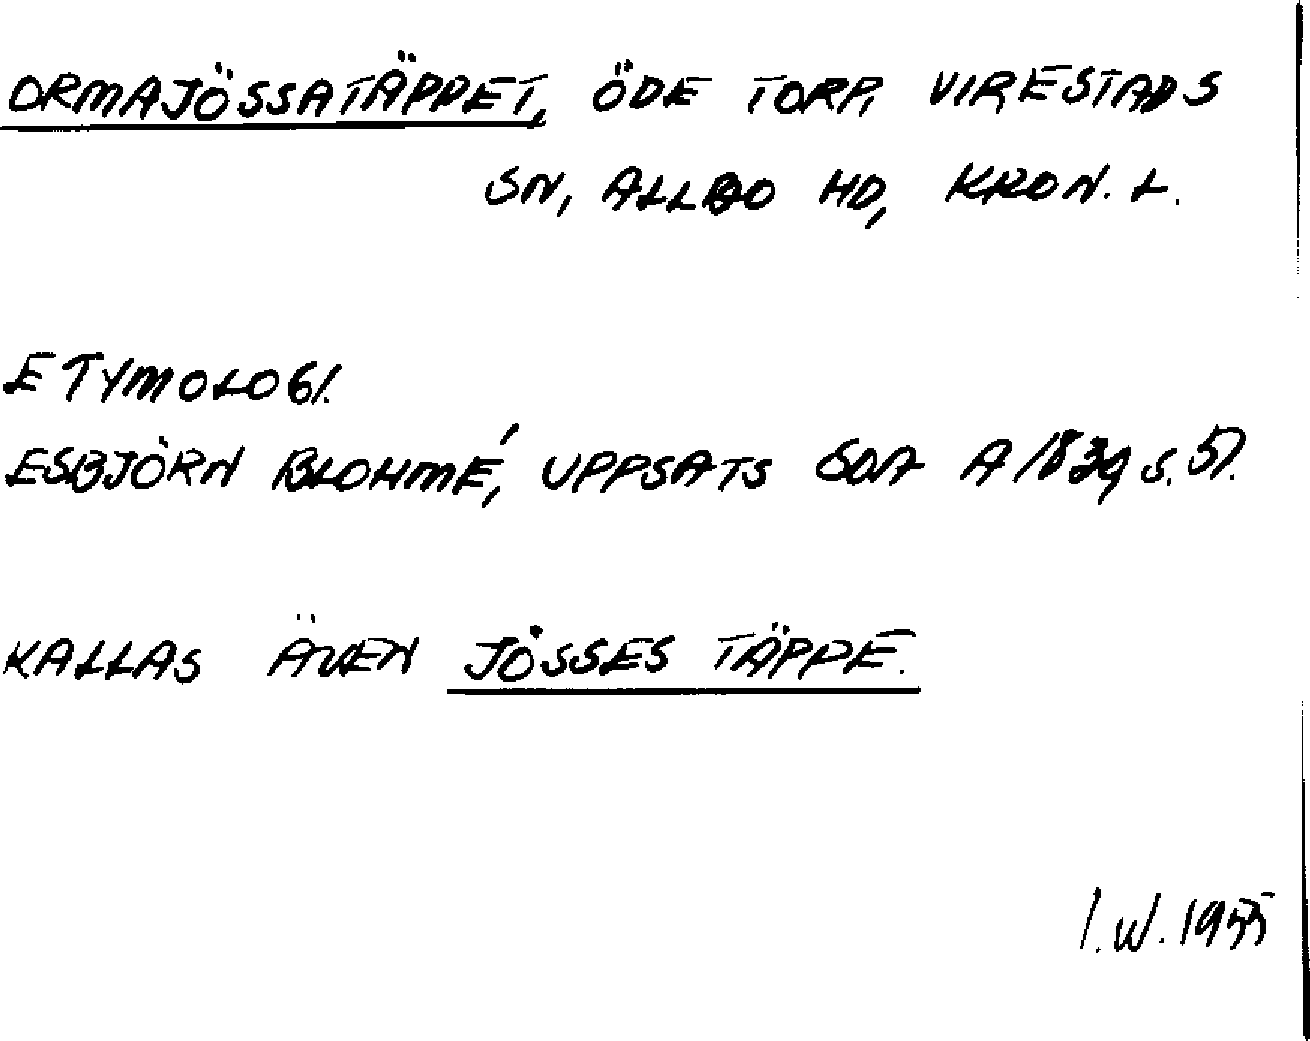 ORMAJÖSSATÄPPET, ÖDE TORP, VIRESTADS
SN, ALLBO HD, KRON. L.
ETYMOLOGI.
ESBJÖRN BLOHMÉ, UPPSATS A 1839 s. 57.
KALLAS ÄVEN JÖSSES TÄPPE.
I.W. 1955